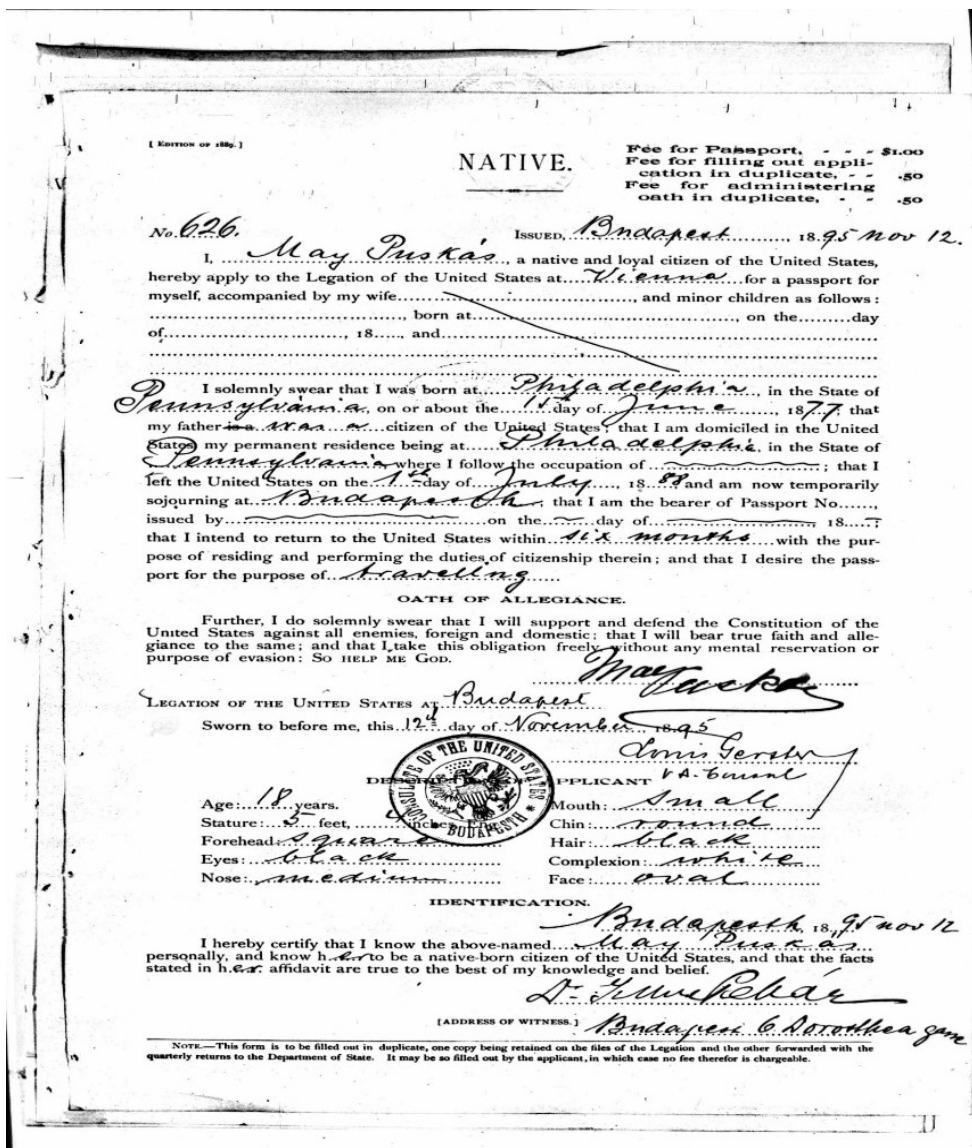 [ EDITION OF 1889. ]
NATIVE.
Fee for Passport, - - - $1.00
Fee for filling out appli-
cation in duplicate, - - .50
Fee for administering
oath in duplicate, - - .50
No. 626. ISSUED, Budapest, 1895 nov 12.
I, May Puskás, a native and loyal citizen of the United States,
hereby apply to the Legation of the United States at Vienna for a passport for
myself, accompanied by my wife, and minor children as follows:
, born at, on the day
of, 18, and
I solemnly swear that I was born at Philadelphia, in the State of
Pennsylvania, on or about the 15 day of June, 1877; that
my father is a was a citizen of the United States; that I am domiciled in the United
States, my permanent residence being at Philadelphia, in the State of
Pennsylvania where I follow the occupation of ; that I
left the United States on the 1st day of July, 1888 and am now temporarily
sojourning at Budapesth; that I am the bearer of Passport No.,
issued by on the day of 18 ;
that I intend to return to the United States within six months with the pur-
pose of residing and performing the duties of citizenship therein; and that I desire the pass-
port for the purpose of travelling
OATH OF ALLEGIANCE.
Further, I do solemnly swear that I will support and defend the Constitution of the
United States against all enemies, foreign and domestic; that I will bear true faith and alle-
giance to the same; and that I take this obligation freely without any mental reservation or
purpose of evasion: SO HELP ME GOD.
May Puskás
LEGATION OF THE UNITED STATES AT Budapest
Sworn to before me, this 12th day of November 1895
Louis Gerster
V A. Consul
CONSULATE OF THE UNITED STATES
BUDAPESTH
APPLICANT
Age: 18 years. Mouth: small
Stature: 5 feet, inches Chin: round
Forehead: square Hair: black
Eyes: black Complexion: white
Nose: medium Face: oval
IDENTIFICATION.
Budapesth, 1895 nov 12
I hereby certify that I know the above-named May Puskás
personally, and know her to be a native-born citizen of the United States, and that the facts
stated in her affidavit are true to the best of my knowledge and belief.
Dr.
[ADDRESS OF WITNESS.] Budapest 6 Dorothea
NOTE.—This form is to be filled out in duplicate, one copy being retained on the files of the Legation and the other forwarded with the
quarterly returns to the Department of State. It may be so filled out by the applicant, in which case no fee therefor is chargeable.